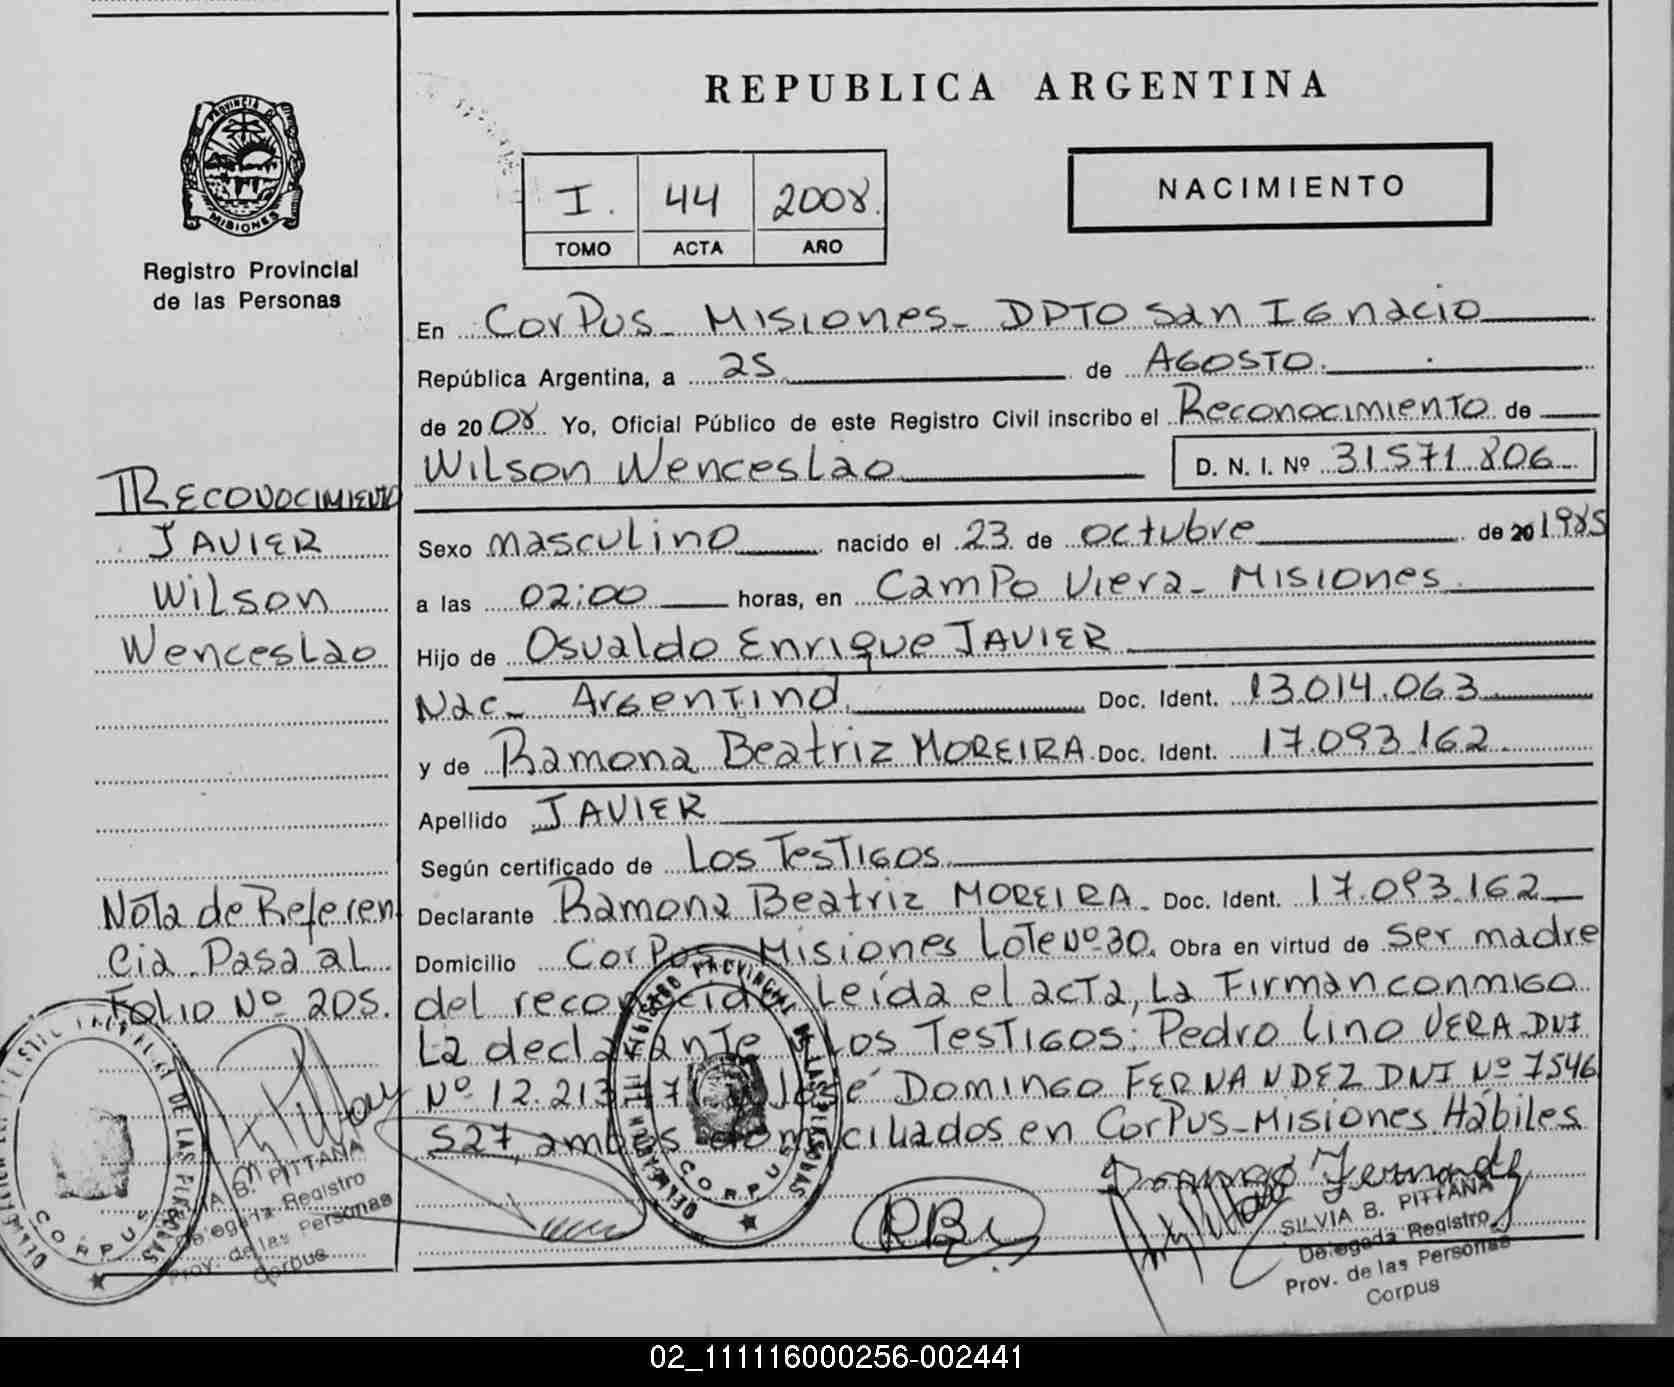 REPUBLICA ARGENTINA
PROVINCIA DE
MISIONES
Registro Provincial
de las Personas
I. 44 2008.
TOMO ACTA AÑO
NACIMIENTO
En Corpus - Misiones - DPTO San Ignacio
República Argentina, a 25 de AGOSTO.
de 20 08 Yo, Oficial Público de este Registro Civil inscribo el Reconocimiento de
Wilson Wenceslao D. N. I. Nº 31.571.806
Sexo masculino nacido el 23 de octubre de 20 1985
a las 02:00 horas, en Campo Viera - Misiones
Hijo de Osvaldo Enrique JAVIER
Nac - Argentino Doc. Ident. 13.014.063
y de Ramona Beatriz MOREIRA Doc. Ident. 17.093.162
Apellido JAVIER
Según certificado de Los Testigos
Declarante Ramona Beatriz MOREIRA Doc. Ident. 17.093.162
Domicilio Corpus Misiones Lote Nº 30. Obra en virtud de Ser madre
del reconocido Leída el acta, La Firman conmigo
La declarante Los Testigos: Pedro Lino VERA DNI
Nº 12.213 José Domingo FERNANDEZ DNI Nº 7546
527, ambos domiciliados en Corpus - Misiones Hábiles
RECONOCIMIENTO
JAVIER
Wilson
Wenceslao
Nota de Referen
cia Pasa al
Folio Nº 205.
DE LAS PERSONAS
CORPUS
B. PITTANA
Delegada Registro
Prov. de las Personas
Corpus
REGISTRO PROVINCIAL DE LAS PERSONAS
CORPUS
Domingo Fernande
SILVIA B. PITTANA
Delegada Registro
Prov. de las Personas
Corpus
02_111116000256-002441